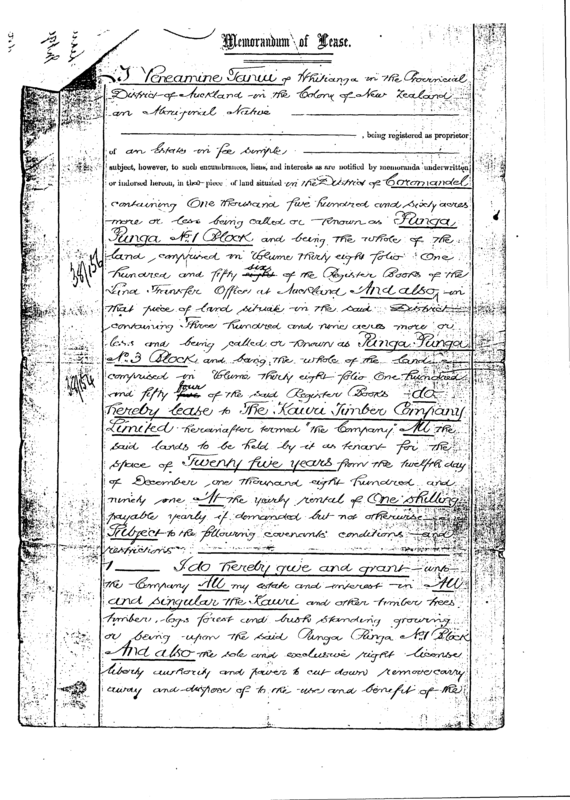 Memorandum of Lease.
I Peneamine Tanui of Whitianga in the Provincial
District of Auckland in the Colony of New Zealand
an Aboriginal Native
, being registered as proprietor
of an Estate in fee simple
subject, however, to such encumbrances, liens, and interests as are notified by memoranda underwritten
or indorsed hereon, in that piece of land situated in the District of Coromandel
containing One thousand five hundred and sixty acres
more or less being called or known as Punga
Punga No. 1 Block and being the whole of the
land comprised in Volume thirty eight folio One
38/156
hundred and fifty eight six of the Register Books of the
Land Transfer Office at Auckland And also in
that piece of land situate in the said District
containing Three hundred and nine acres more or
less and being called or known as Punga Punga
No. 3 Block and being the whole of the land
38/154
comprised in Volume thirty eight folio One hundred
and fifty four of the said Register Books do
hereby lease to The Kauri Timber Company
Limited hereinafter termed "the Company" All the
said lands to be held by it as tenant for the
space of Twenty five years from the twelfth day
of December one thousand eight hundred and
ninety one At the yearly rental of One shilling
payable yearly if demanded but not otherwise
Subject to the following covenants conditions and
restrictions
1 I do hereby give and grant unto
the Company All my estate and interest in All
and singular the Kauri and other timber trees
timber, logs forest and bush standing growing
or being upon the said Punga Punga No. 1 Block
And also the sole and exclusive right license
liberty authority and power to cut down remove carry
away and dispose of to the use and benefit of the